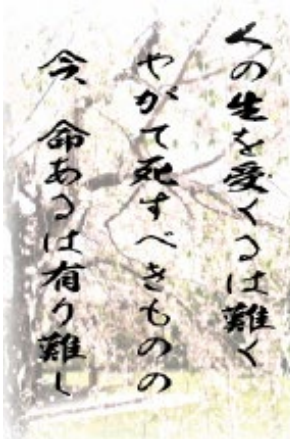 人の生を受くるは難く
やがて死すべきものの
今、命あるは有り難し